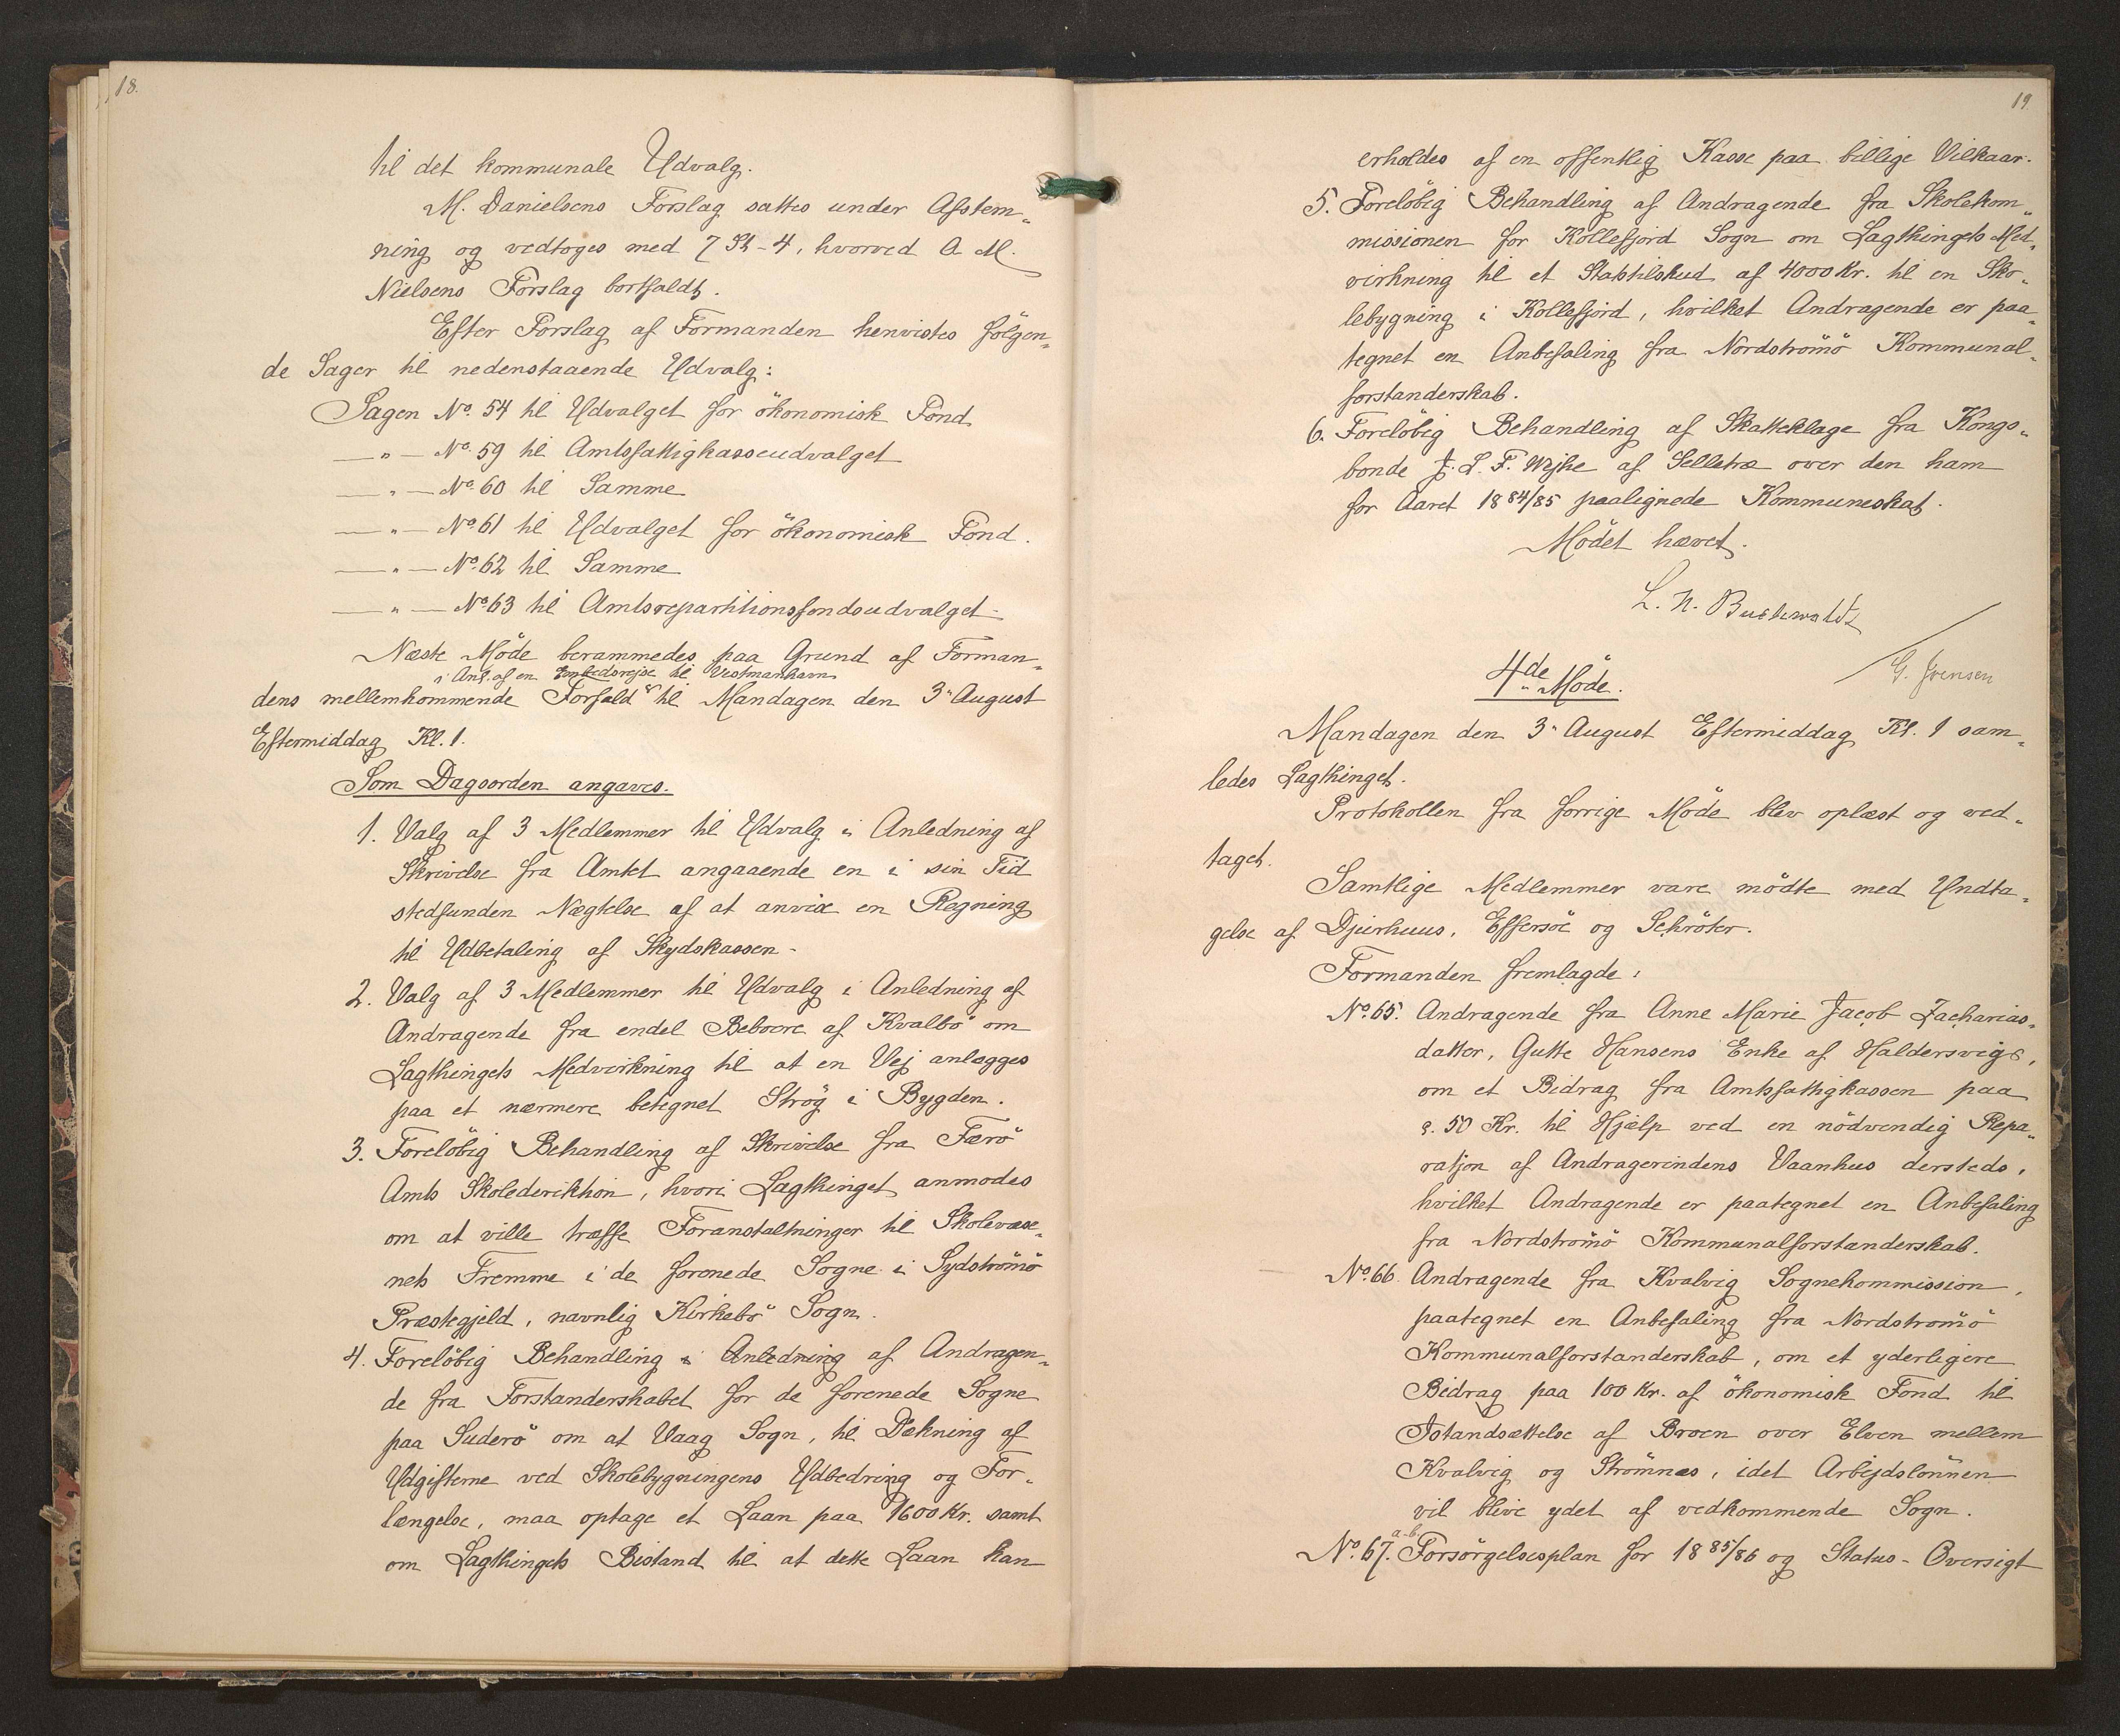 18.
til det kommunale Udvalg.
M. Danielsens Forslag sattes under Afstem-
ning og vedtoges med 7 St-4, hvorved A. M.
Nielsens Forslag bortfaldt.
Efter Forslag af Formanden henvistes fölgen-
de Sager til nedenstaaende Udvalg:
Sagen No. 54 til Udvalget for ökonomisk Fond
—„— No. 59 til Amtsfattigkasseudvalget
—„— No. 60 til Samme
—„— No. 61 til Udvalget for ökonomisk Fond.
—„— No. 62 til Samme
—„— No. 63 til Amtsrepartitionsfondsudvalget-
Næste Möde berammedes paa Grund af Forman-
i Anl. af en Embedsrejse til Vestmanhavn
dens mellemkommende Forfald til Mandagen den 3" August
Eftermiddag Kl. 1.
Som Dagsorden angaves.
1. Valg af 3 Medlemmer til Udvalg i Anledning af
Skrivelse fra Amtet angaaende en i sin Tid
stedfunden Nægtelse af at anvise en Regning
til Udbetaling af Skydskassen-
2. Valg af 3 Medlemmer til Udvalg i Anledning af
Andragende fra endel Beboere af Kvalbö om
Lagthingets Medvirkning til at en Vej anlægges
paa et nærmere betegnet Strög i Bygden.
3. Forelöbig Behandling af Skrivelse fra Færö
Amts Skolederiktion, hvori Lagthinget anmodes
om at ville træffe Foranstaltninger til Skolevæse-
nets Fremme i de forenede Sogne i Sydströmö
Præstegjeld, navnlig Kirkebö Sogn.
4. Forelöbig Behandling i Anledning af Andragen-
de fra Forstanderskabet for de forenede Sogne
paa Suderö om at Vaag Sogn, til Dækning af
Udgifterne ved Skolebygningens Udbedring og For-
længelse, maa optage et Laan paa 1600 Kr. samt
om Lagthingets Bistand til at dette Laan kan
19.
erholdes af en offentlig Kasse paa billige Vilkaar.
5. Forelöbig Behandling af Andragende fra Skolekom-
missionen for Kollefjord Sogn om Lagthingets Med-
virkning til et Statstilskud af 4000 Kr. til en Sko-
lebygning i Kollefjord, hvilket Andragende er paa-
tegnet en Anbefaling fra Nordströmö Kommunal-
forstanderskab.
6. Forelöbig Behandling af Skatteklage fra Kongs-
bonde J. L. F. Wejhe af Selletræ over den ham
for Aaret 1884/85 paalignede Kommuneskat.
Mödet hævet.
L. N. Buchwaldt
/ G. Ivensen
4de Möde.
Mandagen den 3" August Eftermiddag Kl. 1 sam-
ledes Lagthinget.
Protokollen fra forrige Möde blev oplæst og ved-
taget.
Samtlige Medlemmer vare mödte med Undta-
gelse af Djurhuus, Effersöe og Schröter.
Formanden fremlagde:
No. 65. Andragende fra Anne Marie Jacob Zacharias-
datter, Gutte Hansens Enke af Haldersvig,
om et Bidrag fra Amtsfattigkassen paa
c. 50 Kr. til Hjælp ved en nödvendig Repa-
ratjon af Andragerindens Vaanhus dersteds,
hvilket Andragende er paategnet en Anbefaling
fra Nordströmö Kommunalforstanderskab.
No. 66. Andragende fra Kvalvig Sognekommission,
paategnet en Anbefaling fra Nordströmö
Kommunalforstanderskab, om et yderligere
Bidrag paa 100 Kr. af ökonomisk Fond til
Istandsættelse af Broen over Elven mellem
Kvalvig og Strömnæs, idet Arbejdslönnen
vil blive ydet af vedkommende Sogn.
No. 67. a-b. Forsörgelsesplan for 1885/86 og Status-Oversigt